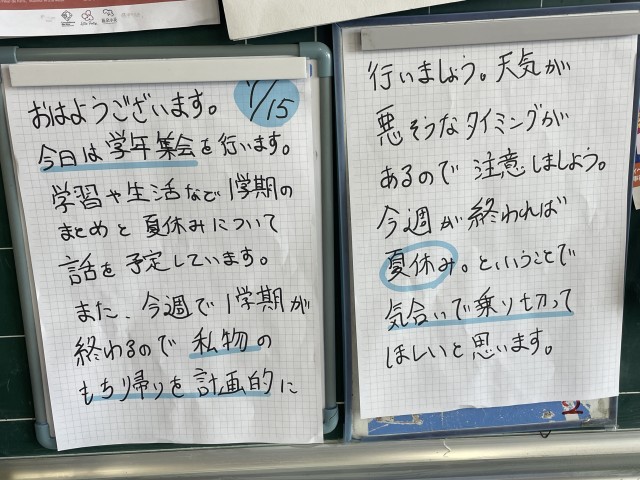 おはようございます。
7/15
今日は学年集会を行います。
学習や生活など1学期の
まとめと夏休みについて
話を予定しています。
また、今週で1学期が
終わるので私物の
もち帰りを計画的に
行いましょう。天気が
悪そうなタイミングが
あるので注意しましょう。
今週が終われば
夏休み。ということで
気合いで乗り切って
ほしいと思います。